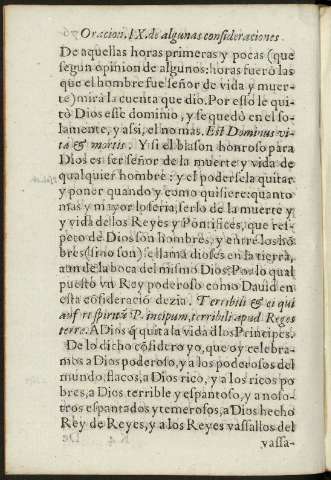 Oracion.IX.de algunas consideraciones
De aquellas horas primeras y pocas (que
segun opinion de algunos: horas fuerõ las
que el hombre fue señor de vida y muer-
te) mirà la cuenta que dio. Por esso le qui
tò Dios esse dominio, y se quedò en el so-
lamente, y assi, el no mas. Est Dominus vi-
tæ & mortis. Y si el blason honroso para
Dios es ser señor de la muerte y vida de
qualquier hombre: y el poder sela quitar
y poner quando y como quisiere: quanto
mas y mayor lo seria, serlo de la muerte y
y vida de los Reyes y Pontifices, que res-
peto de Dios son hombres, y entre los hõ
bres (sino son) se llamã dioses en la tierra,
aun de la boca del mismo Dios. Por lo qual
puesto vn Rey poderoso como Dauid en
esta cõsideraciõ dezia. Terribili & ei qui
aufert spiritũ Principum, terribili apud Reges
terre. A Dios q̃ quita la vida d los Principes.
De lo dicho cõsidero yo, que oy celebra-
mos a Dios poderoso, y a los poderosos del
mundo, flacos, a Dios rico, y a los ricos po
bres, a Dios terrible y espantoso, y a noso-
tros espantados y temerosos, a Dios hecho
Rey de Reyes, y a los Reyes vassallos del
vassa-